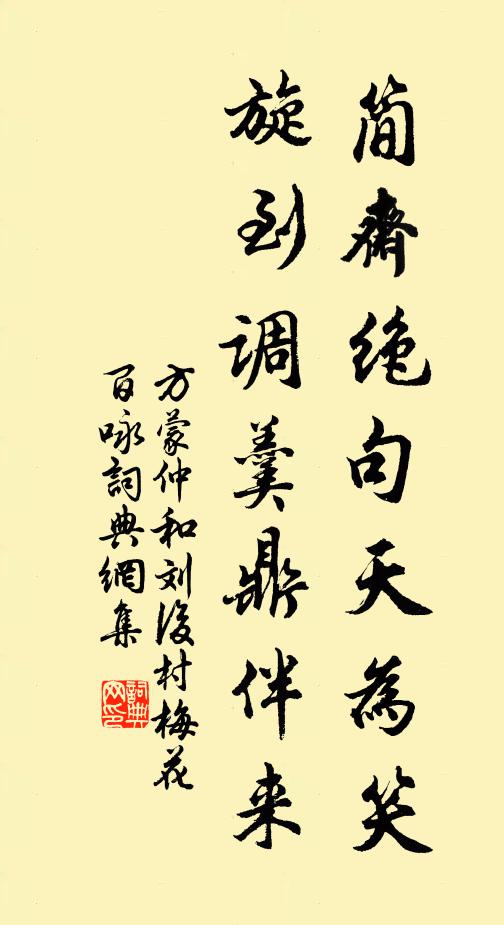 简斋绝句天為笑
旋到调羹鼎伴来
方蒙仲和刘後村梅花
百咏詞典網集
詞典
网印